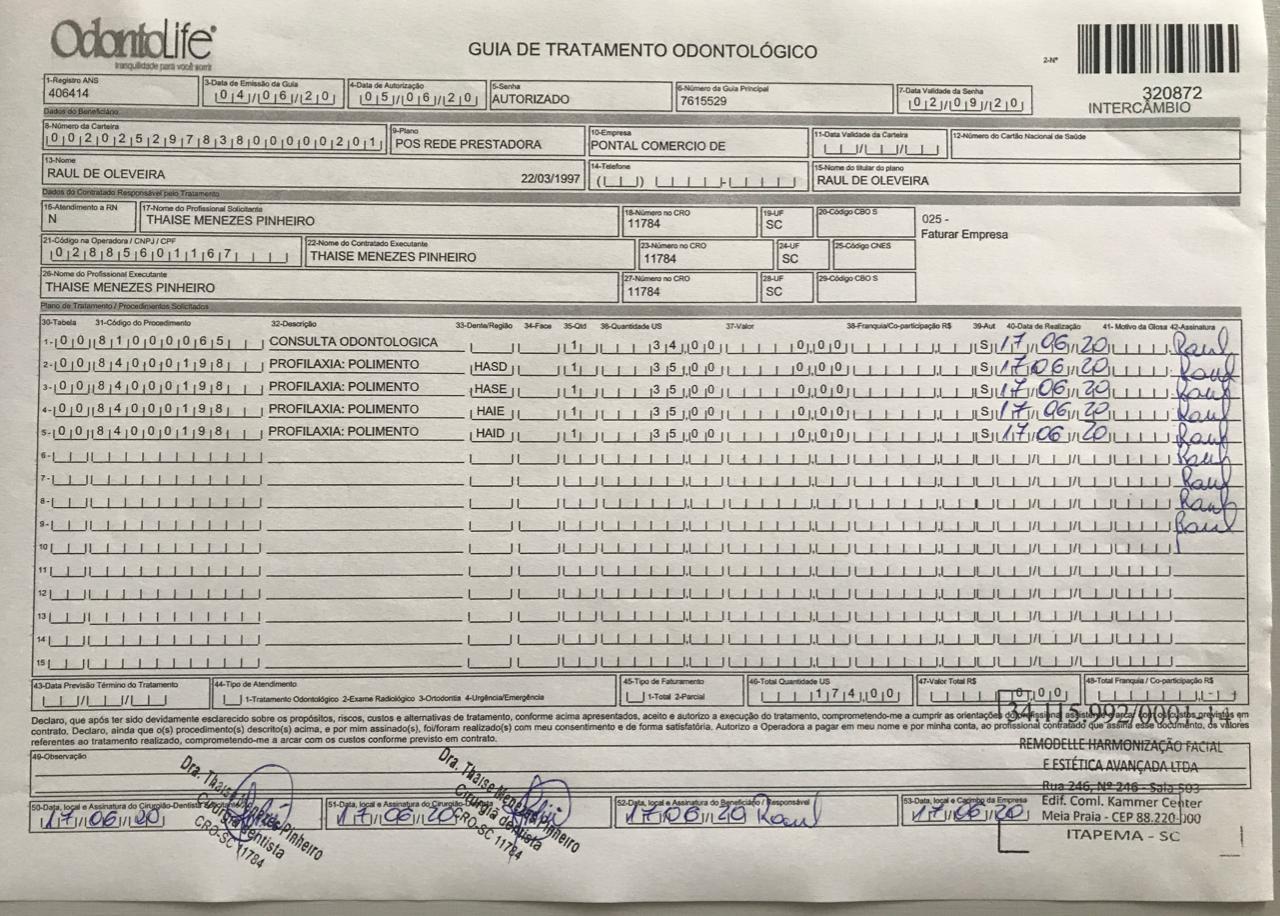 OdontoLife®
tranquilidade para você sorrir
GUIA DE TRATAMENTO ODONTOLÓGICO
2-Nº
320872
INTERCÂMBIO
1-Registro ANS 3-Data de Emissão da Guia 4-Data de Autorização 5-Senha 6-Número da Guia Principal 7-Data Validade da Senha
406414 04/06/20 05/06/20 AUTORIZADO 7615529 02/09/20
Dados do Beneficiário
8-Número da Carteira 9-Plano 10-Empresa 11-Data Validade da Carteira 12-Número do Cartão Nacional de Saúde
00202529783800000201 POS REDE PRESTADORA PONTAL COMERCIO DE
13-Nome 14-Telefone 15-Nome do titular do plano
RAUL DE OLEVEIRA 22/03/1997 RAUL DE OLEVEIRA
Dados do Contratado Responsável pelo Tratamento
16-Atendimento a RN 17-Nome do Profissional Solicitante 18-Número no CRO 19-UF 20-Código CBO S
N THAISE MENEZES PINHEIRO 11784 SC
025 -
Faturar Empresa
21-Código na Operadora / CNPJ / CPF 22-Nome do Contratado Executante 23-Número no CRO 24-UF 25-Código CNES
02885601167 THAISE MENEZES PINHEIRO 11784 SC
26-Nome do Profissional Executante 27-Número no CRO 28-UF 29-Código CBO S
THAISE MENEZES PINHEIRO 11784 SC
Plano de Tratamento / Procedimentos Solicitados
30-Tabela 31-Código do Procedimento 32-Descrição 33-Dente/Região 34-Face 35-Qtd 36-Quantidade US 37-Valor 38-Franquia/Co-participação R$ 39-Aut 40-Data de Realização 41- Motivo da Glosa 42-Assinatura
1- 00 81000065 CONSULTA ODONTOLOGICA 1 34,00 0,00 S 17/06/20 Raul
2- 00 84000198 PROFILAXIA: POLIMENTO HASD 1 35,00 0,00 S 17/06/20 Raul
3- 00 84000198 PROFILAXIA: POLIMENTO HASE 1 35,00 0,00 S 17/06/20 Raul
4- 00 84000198 PROFILAXIA: POLIMENTO HAIE 1 35,00 0,00 S 17/06/20 Raul
5- 00 84000198 PROFILAXIA: POLIMENTO HAID 1 35,00 0,00 S 17/06/20 Raul
6- Raul
7- Raul
8- Raul
9- Raul
10
11
12
13
14
15
43-Data Previsão Término do Tratamento 44-Tipo de Atendimento 45-Tipo de Faturamento 46-Total Quantidade US 47-Valor Total R$ 48-Total Franquia / Co-participação R$
1-Tratamento Odontológico 2-Exame Radiológico 3-Ortodontia 4-Urgência/Emergência 1-Total 2-Parcial 174,00 0,00
Declaro, que após ter sido devidamente esclarecido sobre os propósitos, riscos, custos e alternativas de tratamento, conforme acima apresentados, aceito e autorizo a execução do tratamento, comprometendo-me a cumprir as orientações do profissional assistente e arcar com os custos previstos em
contrato. Declaro, ainda que o(s) procedimento(s) descrito(s) acima, e por mim assinado(s), foi/foram realizado(s) com meu consentimento e de forma satisfatória. Autorizo a Operadora a pagar em meu nome e por minha conta, ao profissional contratado que assina esse documento, os valores
referentes ao tratamento realizado, comprometendo-me a arcar com os custos conforme previsto em contrato.
34.115.992/0001
REMODELLE HARMONIZAÇÃO FACIAL
E ESTÉTICA AVANÇADA LTDA
Rua 246, Nº 246 - Sala 503
Edif. Coml. Kammer Center
Meia Praia - CEP 88.220-000
ITAPEMA - SC
49-Observação
50-Data, local e Assinatura do Cirurgião-Dentista 51-Data, local e Assinatura do Cirurgião 52-Data, local e Assinatura do Beneficiário / Responsável 53-Data, local e Carimbo da Empresa
17/06/20 17/06/20 17/06/20 Raul 17/06/20
Dra. Thaise Menezes Pinheiro
Cirurgiã dentista
CRO-SC 11784
Dra. Thaise Menezes Pinheiro
Cirurgiã dentista
CRO-SC 11784